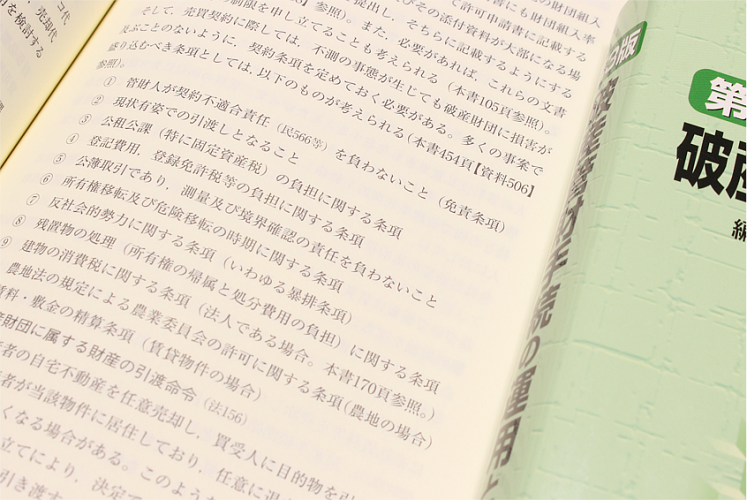 の財団組入
書にも財団組入率
て許可申請書に記載する
提出し、そちらに記載するようにする
びその添付資料が大部になる場
参照）。また、必要があれば、これらの文書
制限を申し立てることも考えられる（本書105頁参照）。
そして、売買契約に際しては、不測の事態が生じても破産財団に損害が
及ぶことのないように、契約条項を定めておく必要がある。多くの事案で
盛り込むべき条項としては、以下のものが考えられる（本書454頁【資料506】
参照）。
① 管財人が契約不適合責任（民566等）を負わないこと（免責条項）
② 現状有姿での引渡しとなること
③ 公租公課（特に固定資産税）の負担に関する条項
④ 登記費用、登録免許税等の負担に関する条項
⑤ 公簿取引であり、測量及び境界確認の責任を負わないこと
⑥ 所有権移転及び危険移転の時期に関する条項
⑦ 反社会的勢力に関する条項（いわゆる暴排条項）
⑧ 残置物の処理（所有権の帰属と処分費用の負担）に関する条項
⑨ 建物の消費税に関する条項（法人である場合。本書170頁参照。）
農地法の規定による農業委員会の許可に関する条項（農地の場合）
賃料・敷金の精算条項（賃貸物件の場合）
財団に属する財産の引渡命令（法156）
者の自宅不動産を任意売却し、買受人に目的物を引
者が当該物件に居住しており、任意に退
くなる場合がある。このような
立てにより、決定で
引き渡す
ヨコ
売却代
を検討する
第
破産
編
版
の運用と